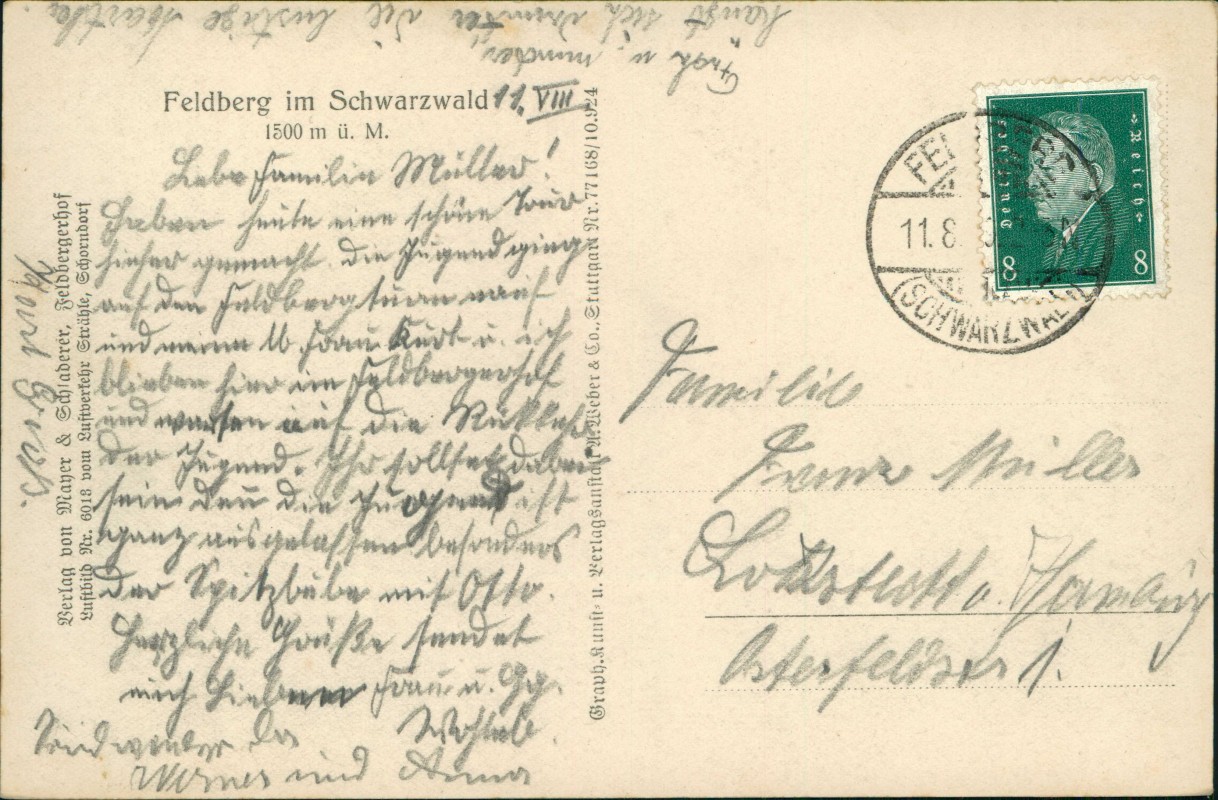 Feldberg im Schwarzwald 11. VIII
1500 m ü. M.
Liebe Familie Müller!
Haben heute eine schöne Tour
hieher gemacht. die Jugend ging
auf den Feldbergturm rauf
und meine lb. Frau Kurt u. ich
blieben hier im Feldbergerhof
und warten auf die Rükkehr
der Jugend. Ihr solltet dabei
sein den die Jugend ist
ganz ausgelassen besonders
der Spitzbube mit Otto.
Herzliche Grüße sendet
euch Frau u.
Sind wieder da
Werner und Anna
hängt sich drunter die lustige Martha
Froh u. munter
Kurt Gruß.
Verlag von Mayer & Schladerer, Feldbergerhof
Luftbild Nr. 6018 vom Luftverkehr Strähle, Schorndorf
Graph. Kunst- u. Verlagsanstalt A. Weber & Co., Stuttgart Nr. 77168/10.924
Deutsches Reich
8 8
11.8.
(SCHWARZWALD)
Familie
Franz Müller
Lokstedt b. Hamburg
Osterfeldstr 1.